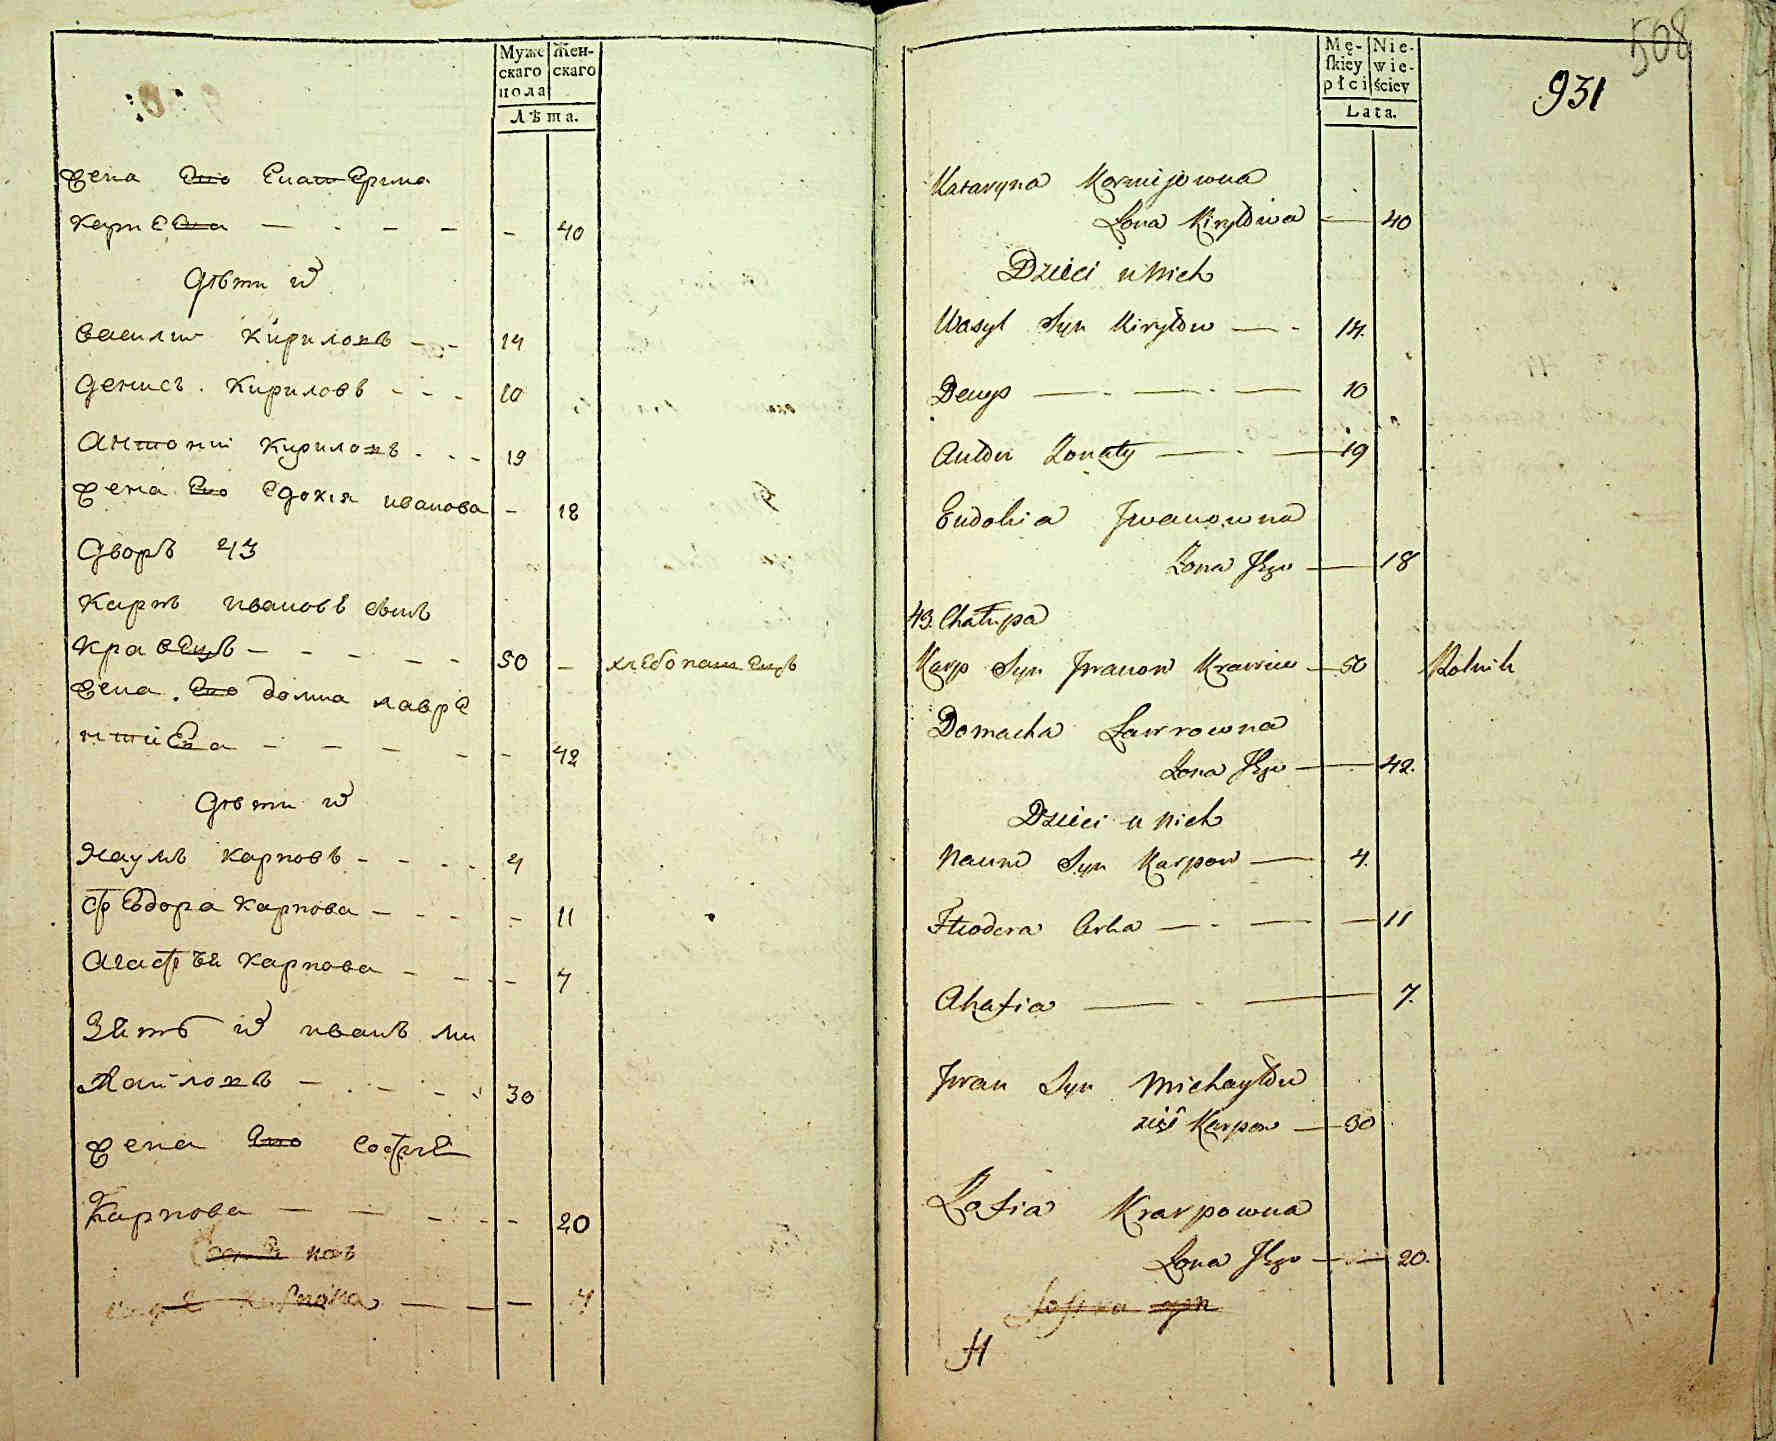 Муже Жен-
скаго скаго
пола
Лѣта.
жена Его Екатерина
карнѣева — . — — — 40
Дѣти и҃
василии кириловъ — — 14
денисъ . кириловъ - - - 10
Антонии кириловъ . - - 19
жена Его Едокія иванова - 18
Дворъ 43
карпъ ивановъ сынъ
кравецъ — — — — — 50 — хлебопашецъ
жена . Его домна лавре
нтиева — — — — — - 42
Дѣти и҃
Наумъ карповъ - - - - 4
Ѳеѡдора карпова — - - - 11
Агафѣя карпова — — - - 7
Зять и҃ иванъ ми
хаиловъ — . — - - 30
жена Его софиѣ
Карпова — — - - - 20
— — — 4
508
931
Mę- Nie-
skiey wie-
płci ściey
Lata.
Kataryna Kornijowna
Żona Kiryłowa — 40
Dzieci u Nich
Wasyl Syn Kiryłow — - 14.
Denys — . — . — 10
Anton Żonaty — . — 19
Eudokia Jwanowna
Żona Jego — 18
43. Chałupa
Karp Syn Jwanow Krawiec — 50 Rolnik
Domacha Ławrowna
Żona Jego — 42.
Dzieci u Nich
Naum Syn Karpow — 4.
Fteodora Corka — . — — 11
Ahafia — . — 7.
Jwan Syn Michayłow
zięć Karpow — 30
Zofia Krarpowna
Żona Jego — . — 20.
H